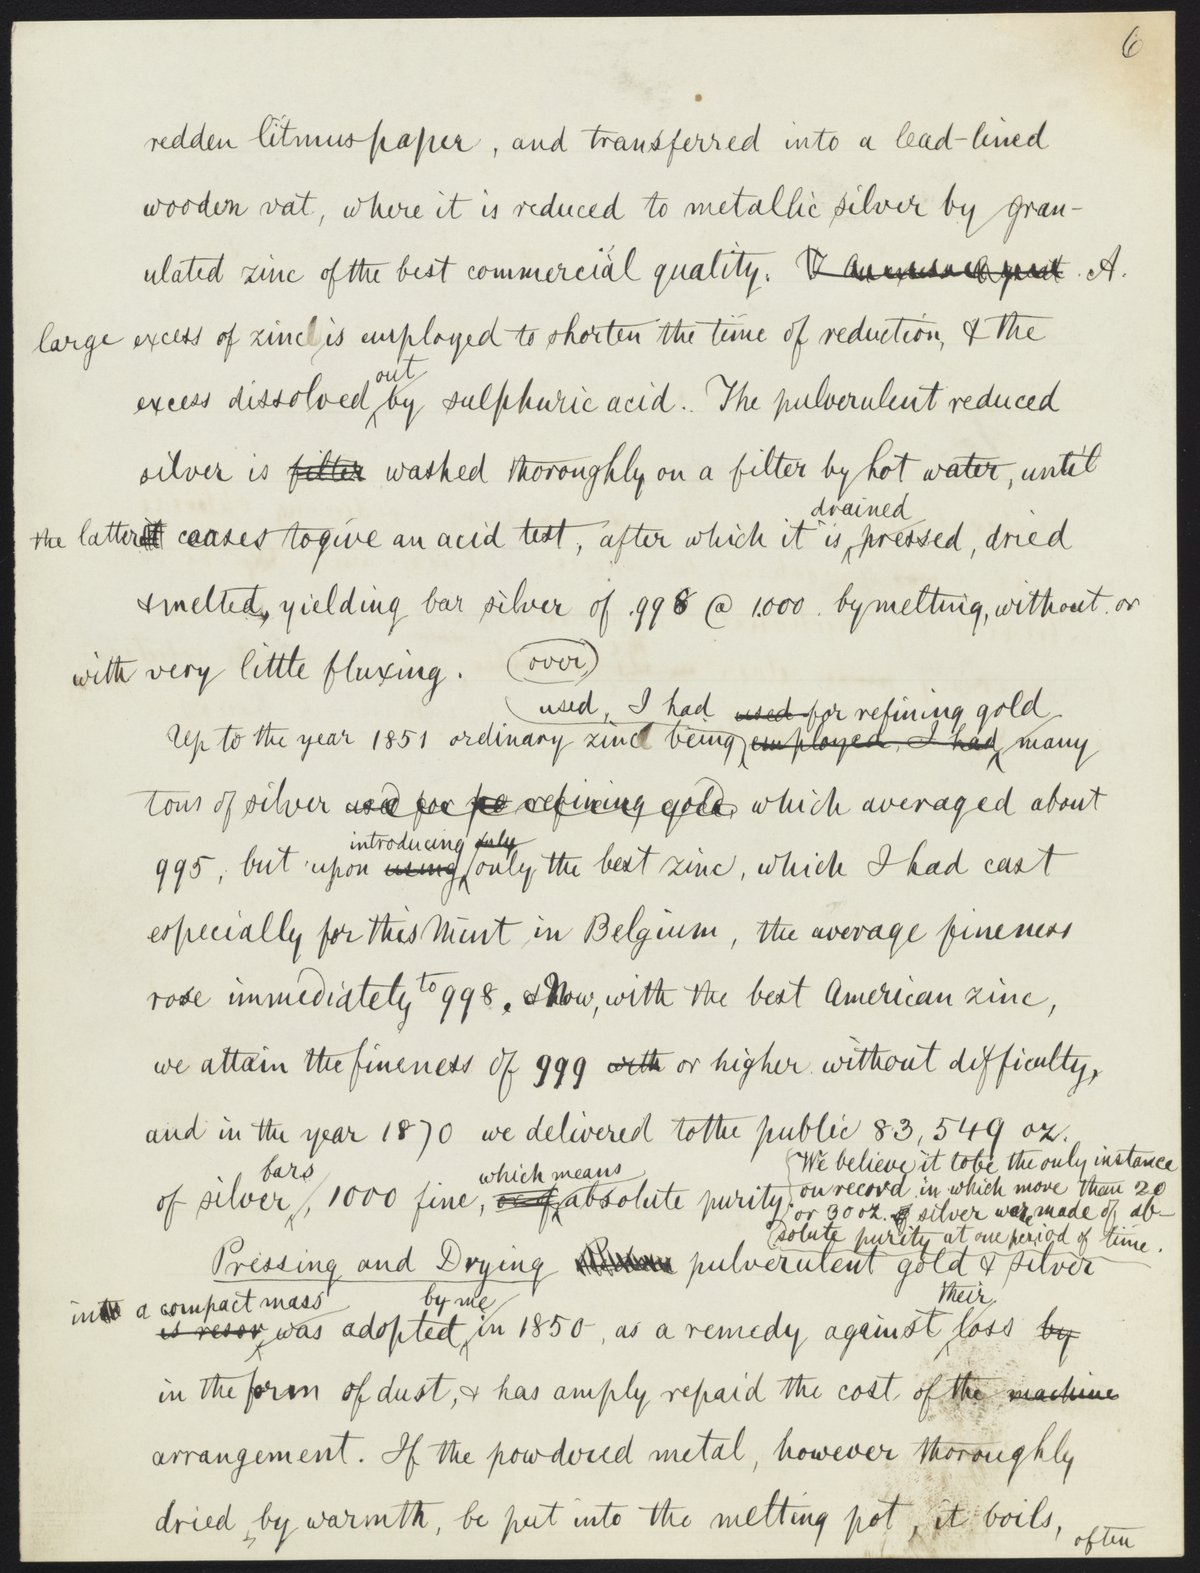 6
redden litmus paper, and transferred into a lead-lined
wooden vat, where it is reduced to metallic silver by gran-
ulated zinc of the best commercial quality. A.
large excess of zinc is employed to shorten the time of reduction, & the
out
excess dissolved by sulphuric acid.. The pulverulent reduced
silver is filter washed thoroughly on a filter by hot water, until
drained
the latter it ceases to give an acid test, after which it is pressed, dried
& melted, yielding bar silver of .998 @ 1.000. by melting, without or
with very little fluxing. over
used, I had used for refining gold
Up to the year 1851 ordinary zinc being employed, I had many
tons of silver used for pa refining gold, which averaged about
introducing only
995, but upon using only the best zinc, which I had cast
especially for this Mint in Belgium, the average fineness
rose immediately to 998. & Now, with the best American zinc,
we attain the fineness of 999 with or higher without difficulty,
and in the year 1870 we delivered to the public 83,549 oz.
bars which means
of silver, 1000 fine, or of absolute purity.
We believe it to be the only instance
on record in which more than 20
or 30 oz. of silver were made of ab-
solute purity at one period of time.
Pressing and Drying pulverulent gold & silver
into a compact mass by me their
is resor was adopted in 1850, as a remedy against loss by
in the form of dust, & has amply repaid the cost of the machine
arrangement. If the powdered metal, however thoroughly
dried by warmth, be put into the melting pot, it boils, often